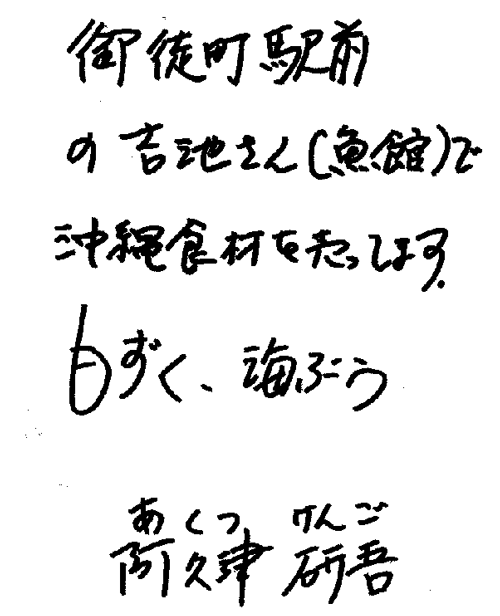 御徒町駅前
の吉池さん(魚館)で
沖縄食材を売ってます。
もずく、海ぶどう
あくつ けんご
阿久津 研吾